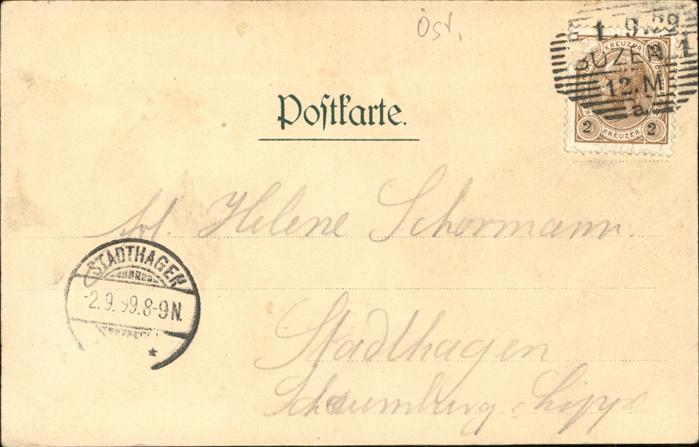 Öst.
1.9.99
BOZEN 1
12.M
a
KREUZER
2 2
KREUZER
Poſtkarte.
Frl. Helene Schormann.
STADTHAGEN
-2.9.99.8-9N.
*
Stadthagen
Schaumburg-Lippe